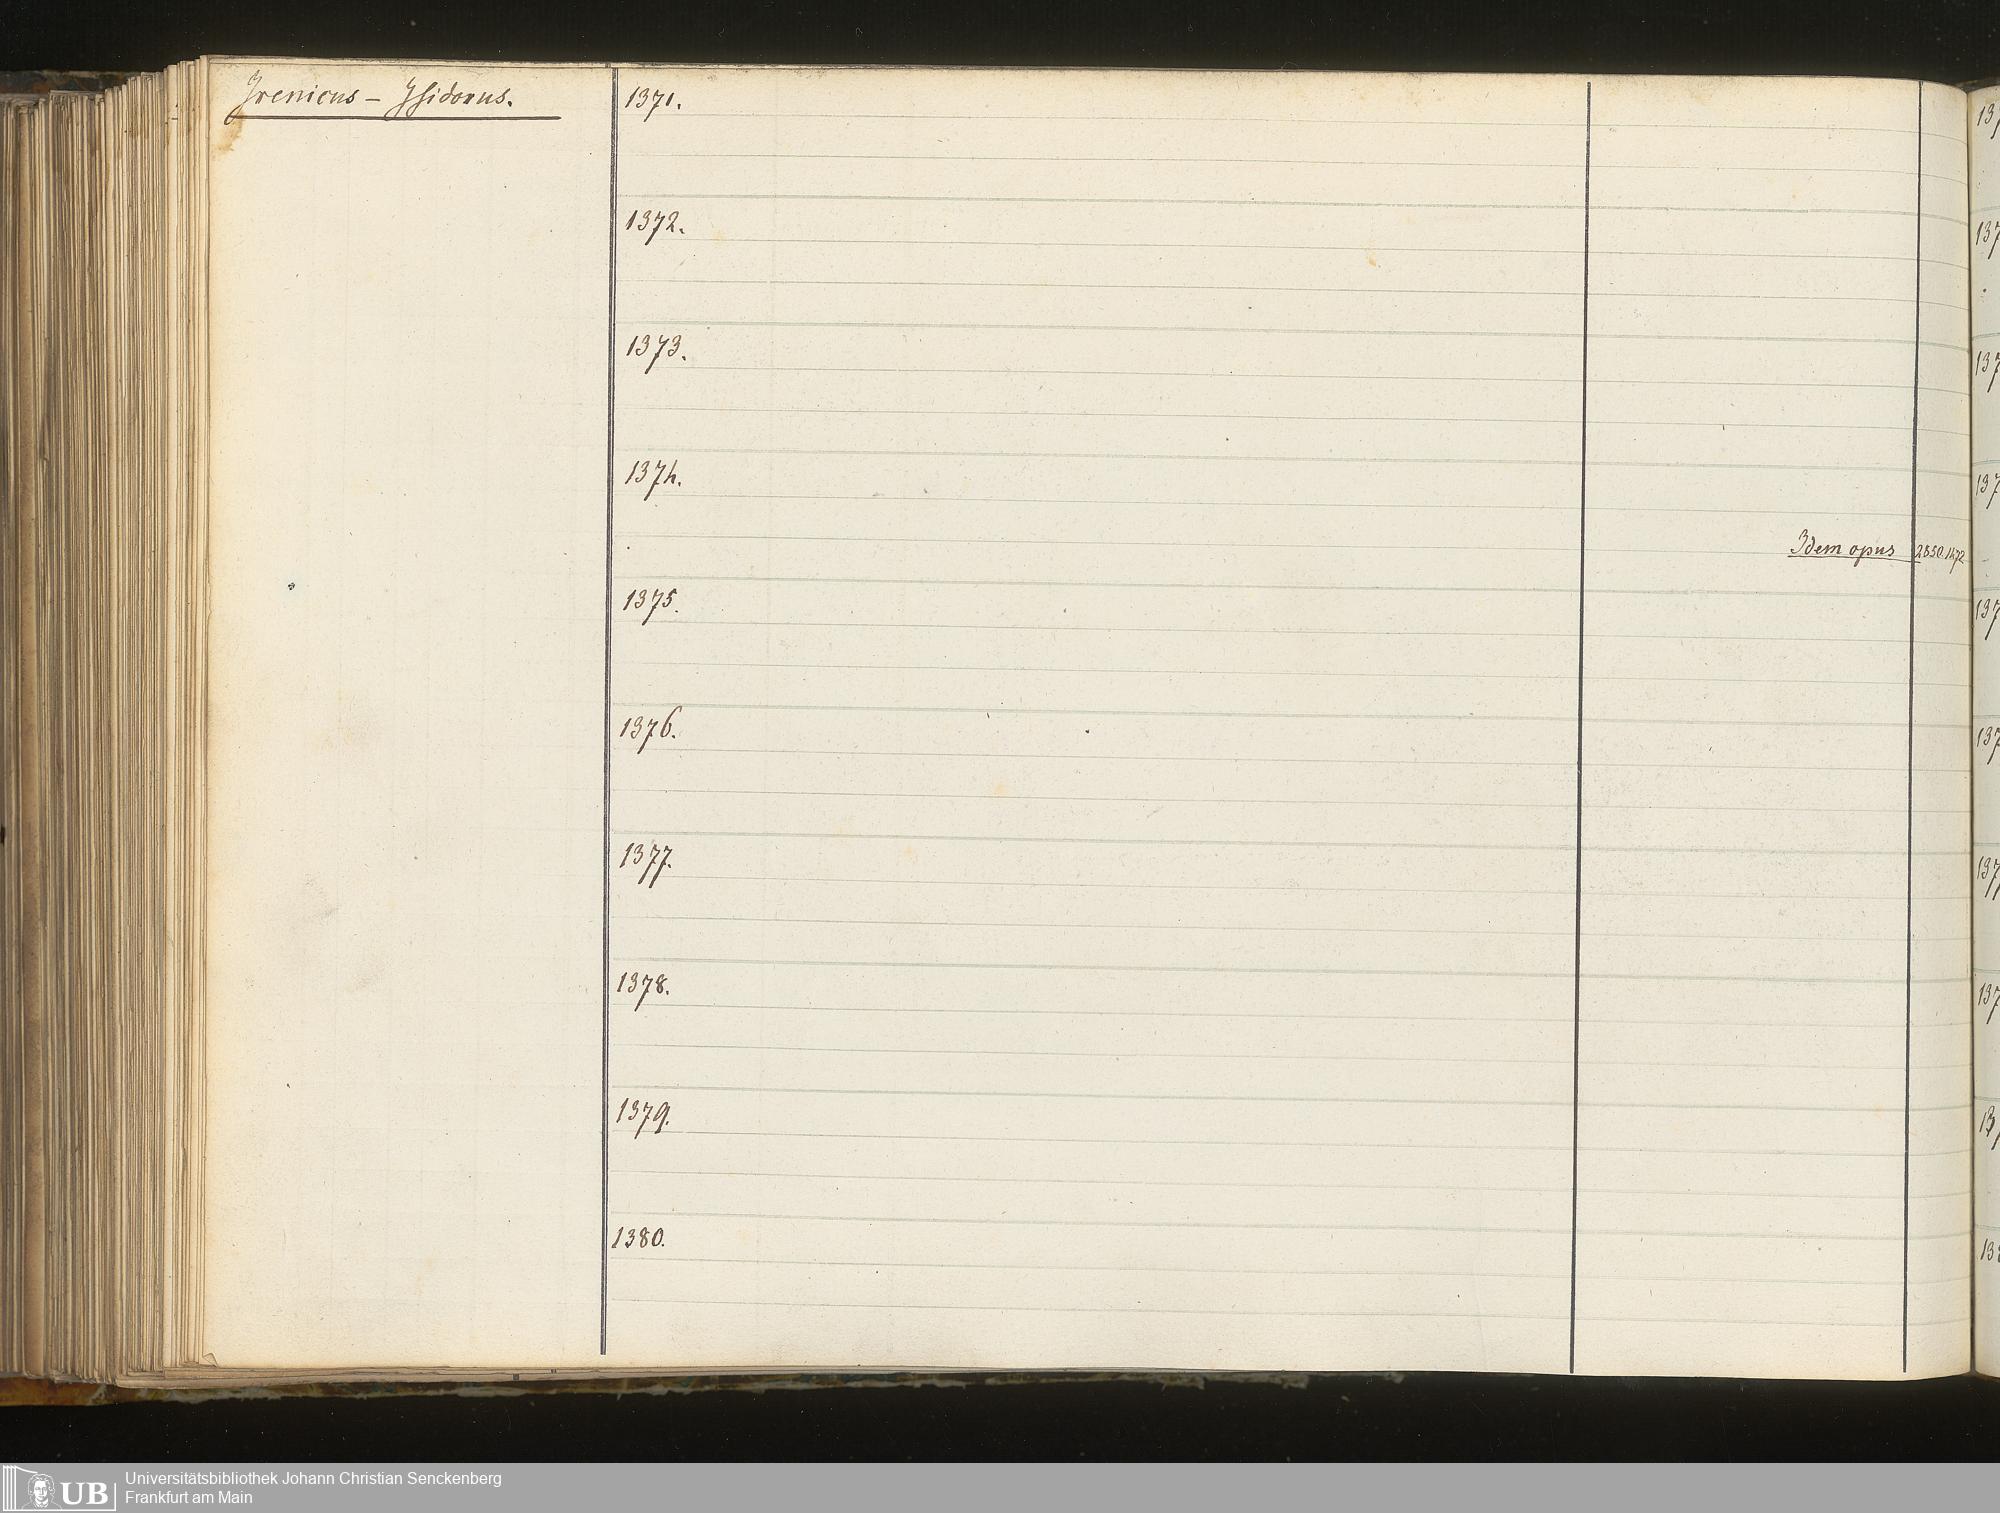 Irenicus – Isidorus.
1371.
1372.
1373.
1374.
Idem opus 2850.1472
1375.
1376.
1377.
1378.
1379.
1380.
UB
Universitätsbibliothek Johann Christian Senckenberg
Frankfurt am Main